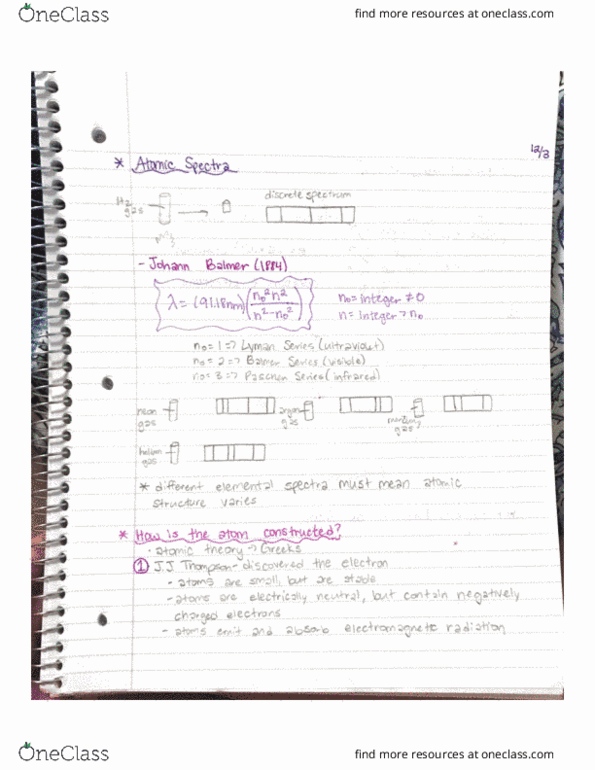 OneClass
find more resources at oneclass.com
12/3
* Atomic Spectra
H2 gas
discrete spectrum
- Johann Balmer (1884)
λ = (91.18nm) (n₀²n² / n²-n₀²)
n₀ = integer ≠ 0
n = integer > n₀
n₀ = 1 => Lyman Series (ultraviolet)
n₀ = 2 => Balmer Series (visible)
n₀ = 3 => Paschen Series (infrared)
neon gas
argon gas
gas
helium gas
* different elemental spectra must mean atomic
structure varies
* How is the atom constructed?
· atomic theory → Greeks
① J.J Thompson - discovered the electron
- atoms are small, but are stable
- atoms are electrically neutral, but contain negatively
charged electrons
- atoms emit and absorb electromagnetic radiation
OneClass
find more resources at oneclass.com